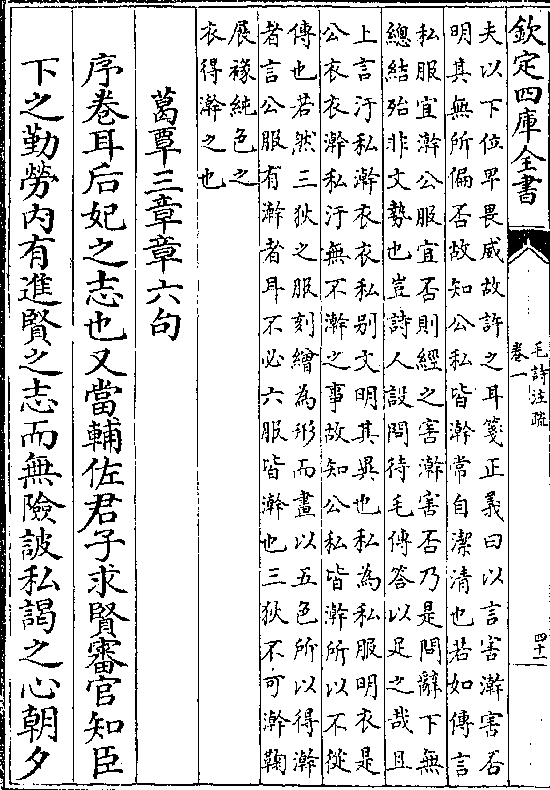 欽定四庫全書
毛詩注疏
卷一
四十一
夫以下位卑畏威故許之耳箋正義曰以言害澣害否
明其無所偏否故知公私皆澣常自潔清也若如傳言
私服宜澣公服宜否則經之害澣害否乃是問辭下無
總結殆非文勢也豈詩人設問待毛傳答以足之哉且
上言汙私澣衣衣私别文明其異也私為私服明衣是
公衣衣澣私汙無不澣之事故知公私皆澣所以不從
傳也若然三狄之服刻繒為形而畫以五色所以得澣
者言公服有澣者耳不必六服皆澣也三狄不可澣鞠
展褖純色之
衣得澣之也
葛覃三章章六句
序卷耳后妃之志也又當輔佐君子求賢審官知臣
下之勤勞内有進賢之志而無險詖私謁之心朝夕